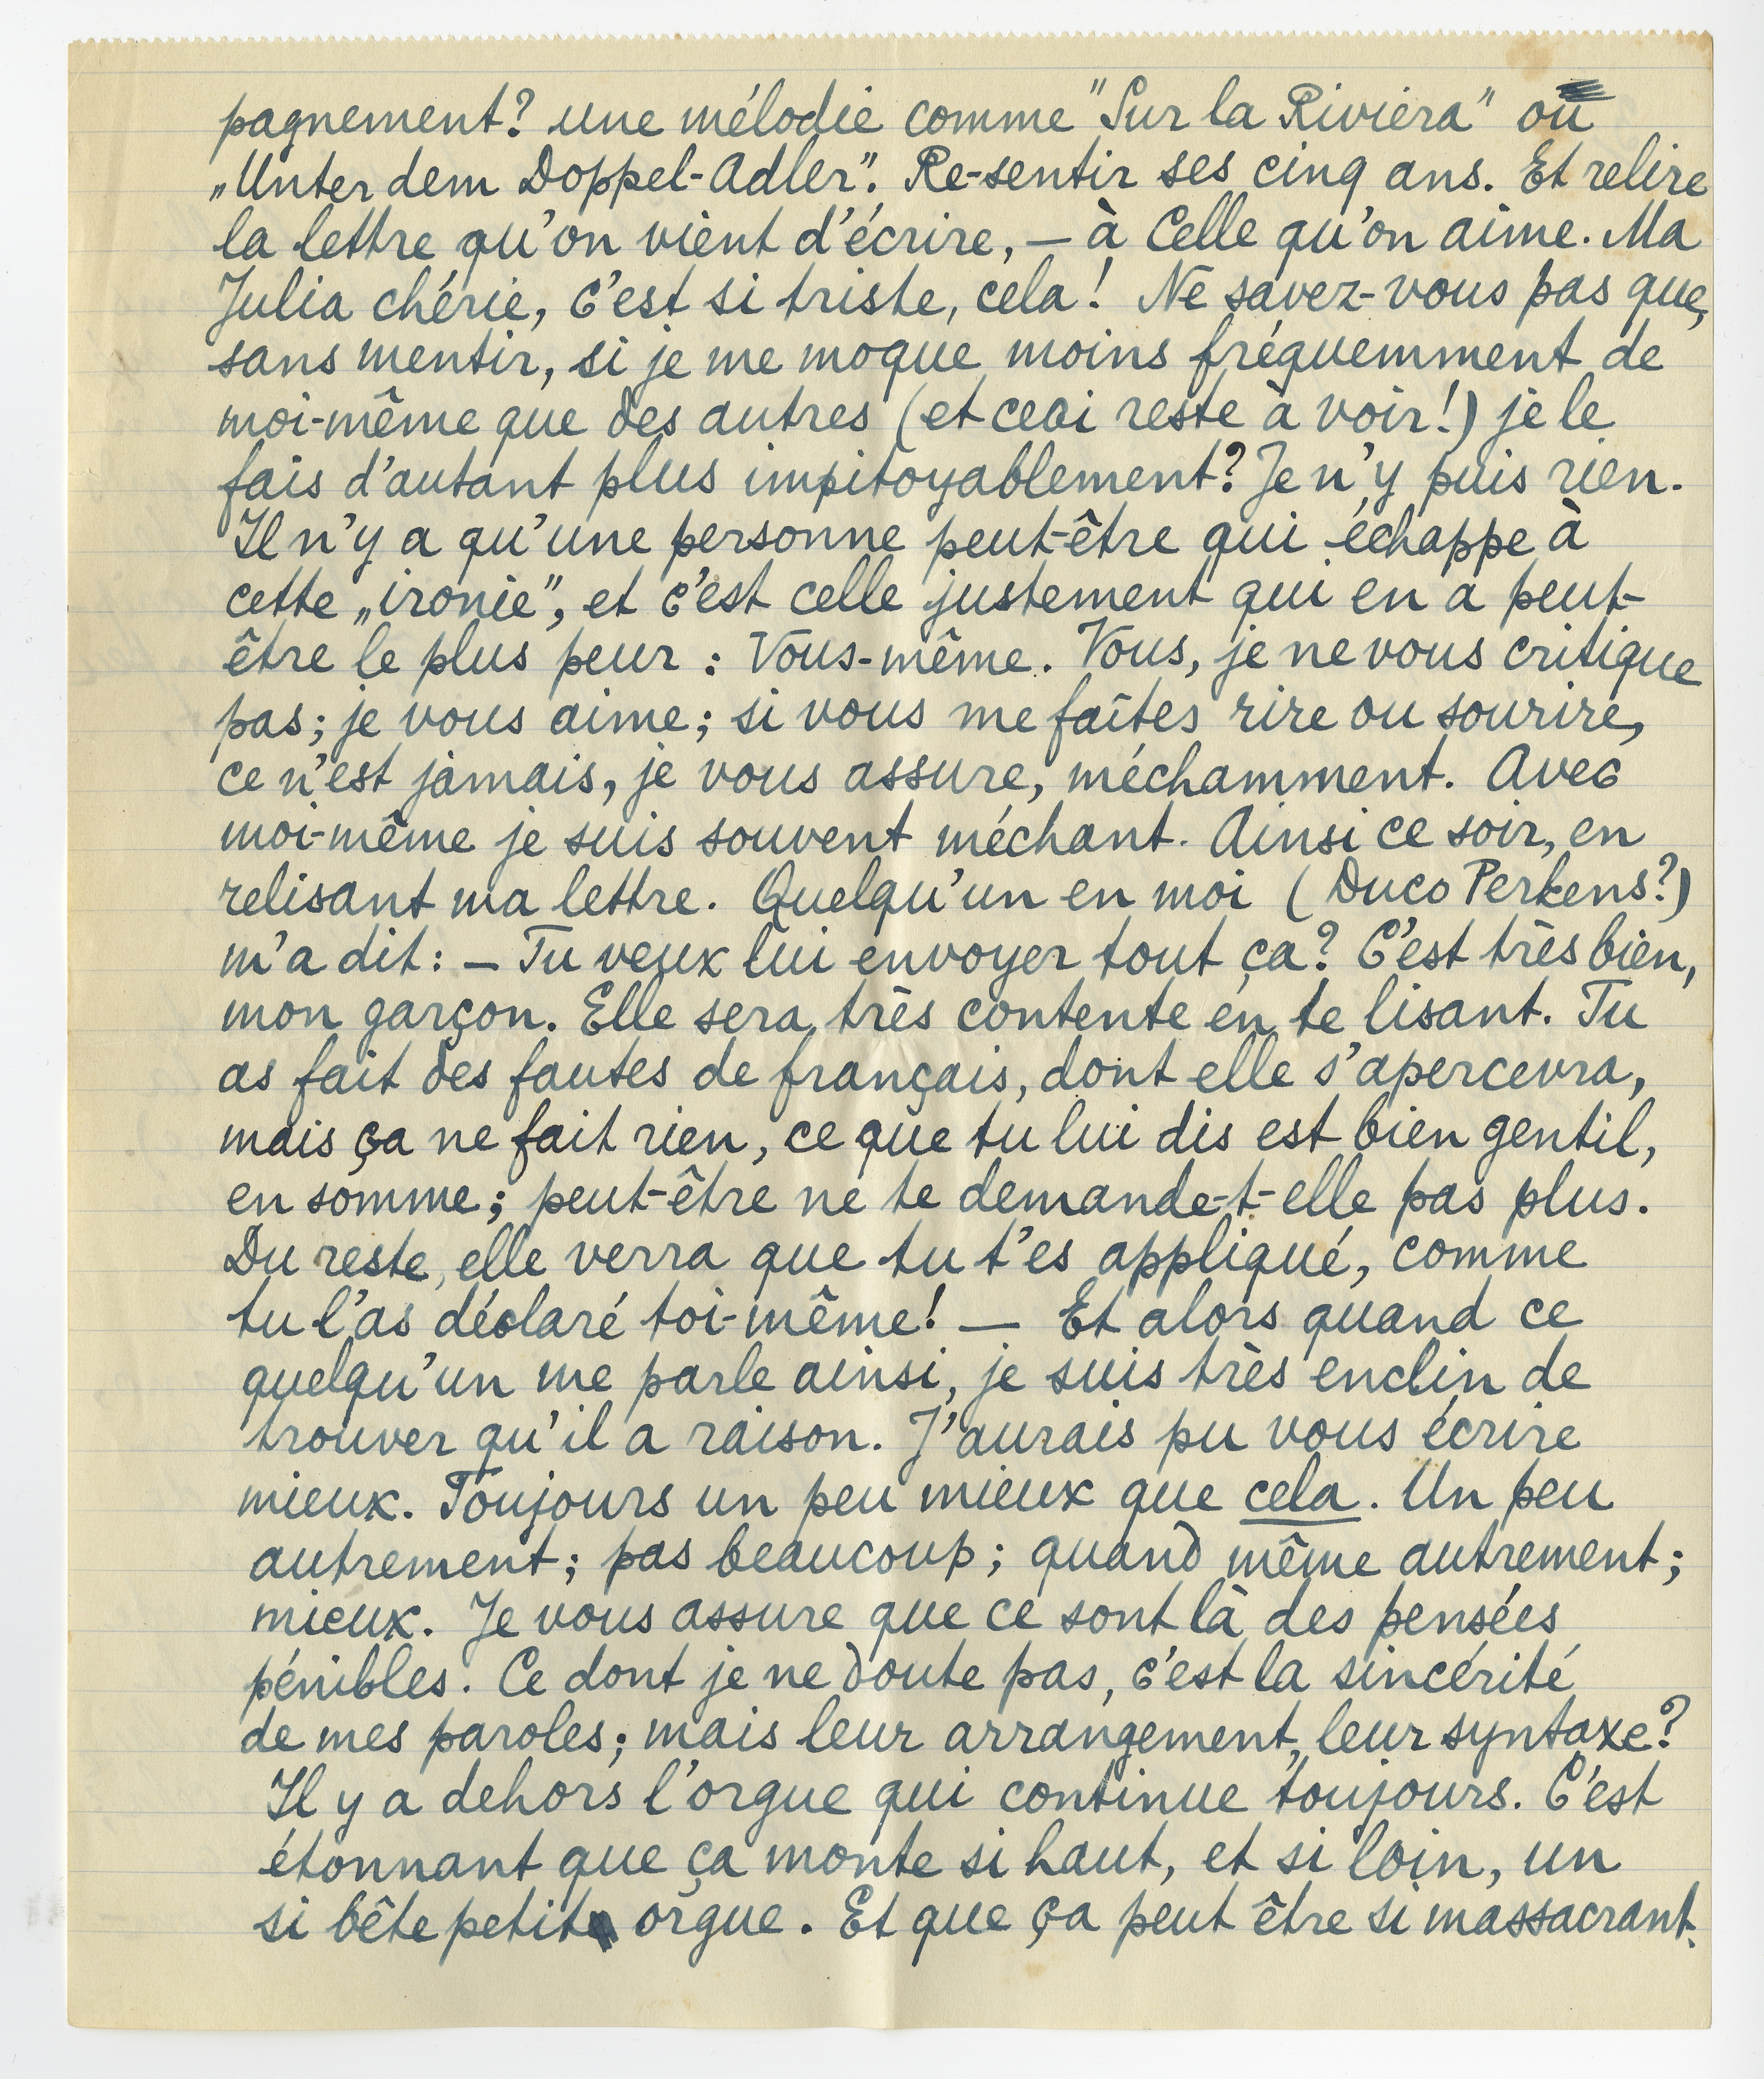 pagnement? une mélodie comme "Sur la Riviera" ou
„Unter dem Doppel-Adler". Re-sentir ses cinq ans. Et relire
la lettre qu'on vient d'écrire, — à Celle qu'on aime. Ma
Julia chérie, c'est si triste, cela! Ne savez-vous pas que,
sans mentir, si je me moque moins fréquemment de
moi-même que des autres (et ceci reste à voir!) je le
fais d'autant plus impitoyablement? Je n'y puis rien.
Il n'y a qu'une personne peut-être qui échappe à
cette „ironie", et c'est celle justement qui en a peut-
être le plus peur : Vous-même. Vous, je ne vous critique
pas; je vous aime; si vous me faites rire ou sourire,
ce n'est jamais, je vous assure, méchamment. Avec
moi-même je suis souvent méchant. Ainsi ce soir, en
relisant ma lettre. Quelqu'un en moi (Duco Perkens?)
m'a dit: — Tu veux lui envoyer tout ça? C'est très bien,
mon garçon. Elle sera très contente en te lisant. Tu
as fait des fautes de français, dont elle s'apercevra,
mais ça ne fait rien, ce que tu lui dis est bien gentil,
en somme; peut-être ne te demande-t-elle pas plus.
Du reste, elle verra que tu t'es appliqué, comme
tu l'as déclaré toi-même! — Et alors quand ce
quelqu'un me parle ainsi, je suis très enclin de
trouver qu'il a raison. J'aurais pu vous écrire
mieux. Toujours un peu mieux que cela. Un peu
autrement; pas beaucoup; quand même autrement;
mieux. Je vous assure que ce sont là des pensées
pénibles. Ce dont je ne doute pas, c'est la sincérité
de mes paroles; mais leur arrangement, leur syntaxe?
Il y a dehors l'orgue qui continue toujours. C'est
étonnant que ça monte si haut, et si loin, un
si bête petit orgue. Et que ça peut être si massacrant.